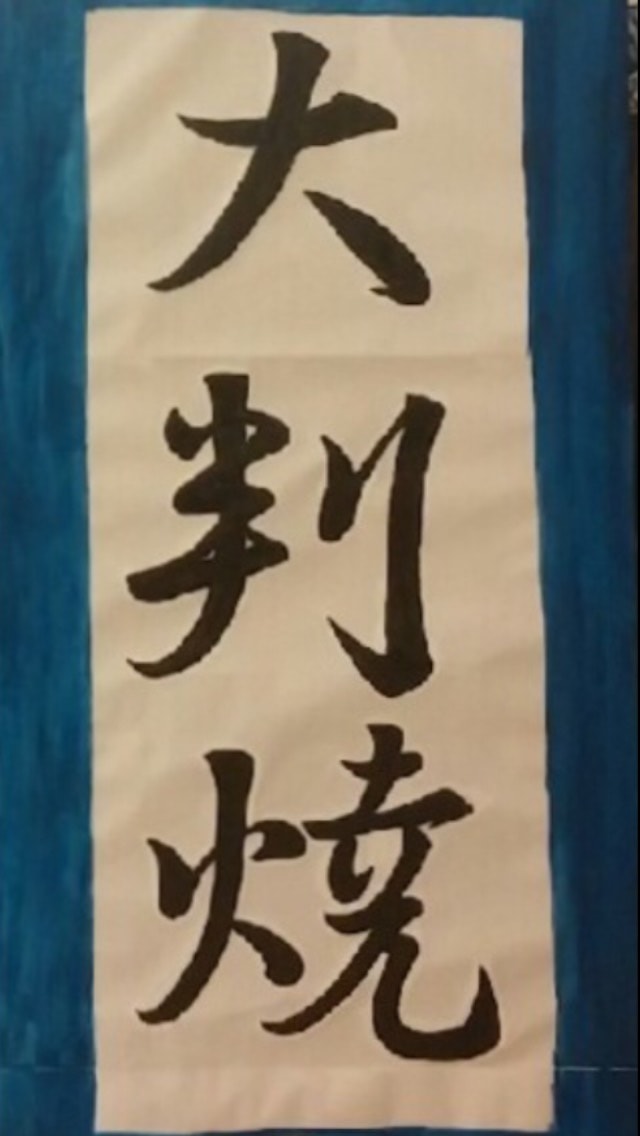 大判焼